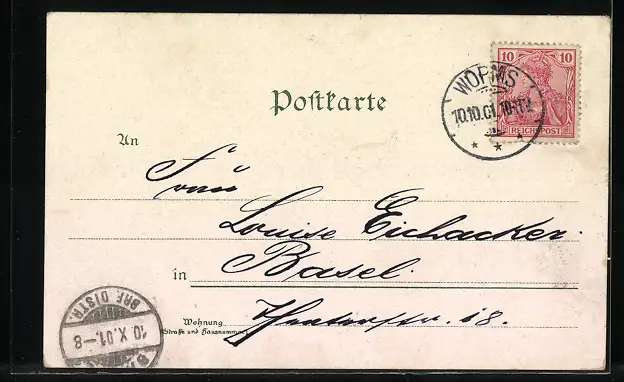 10 10
WORMS
10.10.01. 10-11V.
REICHSPOST
Postkarte
An
Frau
Louise Eichacker.
in Basel.
Wohnung
(Straße und Hausnummer)
18.
BRF. DISTR.
10. X. 01.-8